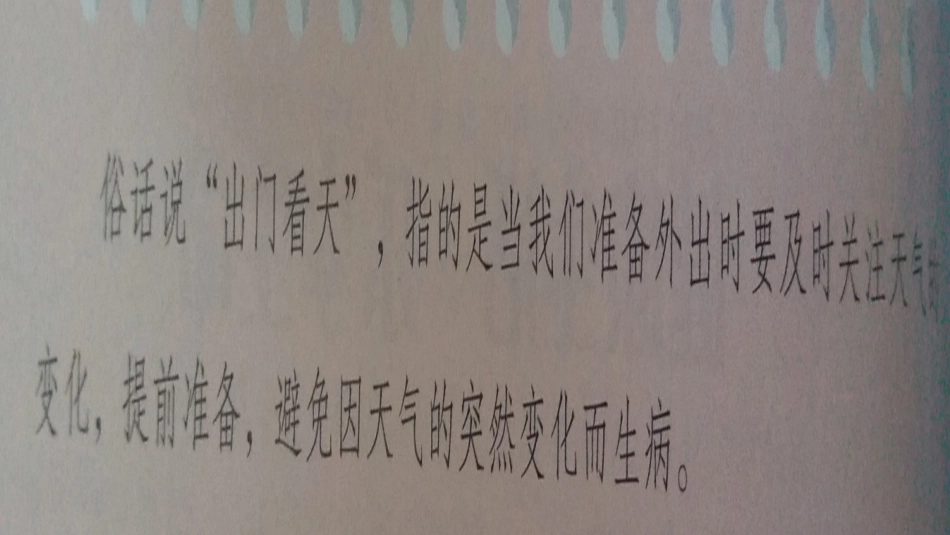 俗话说“出门看天”，指的是当我们准备外出时要及时关注天气
变化，提前准备，避免因天气的突然变化而生病。